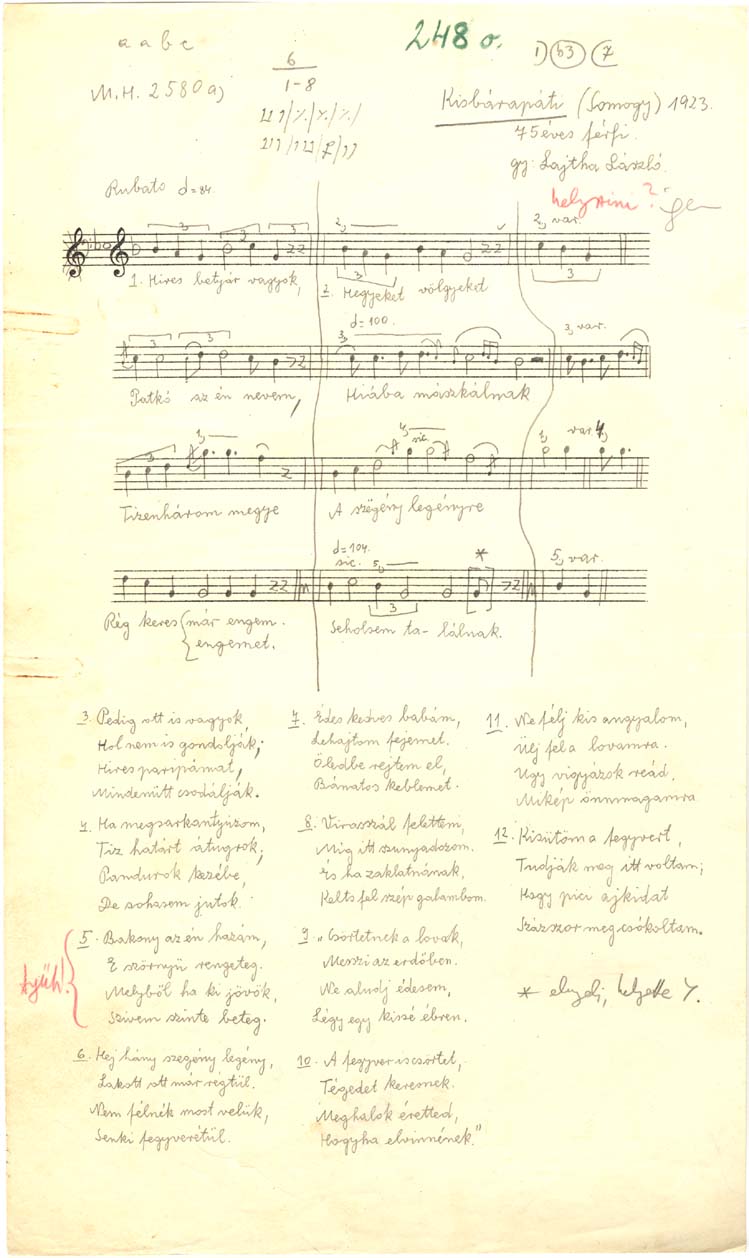 a a b c
248 o.
1) b3 7
M.H. 2580 a)
6
1-8
Kisbárapáti (Somogy) 1923.
75 éves férfi.
gy. Lajtha László.
helyszíni? igen
Rubato d=84
3 3 3
2, 3
2, var. 3
1. Hires betjár vagyok,
2. Hegyeket völgyeket
d=100.
3 3
3,
3, var.
Patkó az én nevem,
Hiába mászkálnak
3 1,
4, sic.
1, var 4,
Tizenhárom megye
A szëgény legényre
d=104.
sic. 5, 3 *
5, var.
Rég keres már engem.
engemet.
Seholsem ta- lálnak.
3. Pedig ott is vagyok,
Hol nem is gondolják;
Hires paripámat,
Mindenütt csodálják.
4. Ha megsarkantyúzom,
Tiz határt átugrok,
Pandurok kezébe,
De sohasem jutok.
Ajüh!
5. Bakony az én hazám,
E szörnyü rengeteg.
Melyből ha ki jövök,
Szivem szinte beteg.
6. Hej hány szegény legény,
Lakott ott már régtül.
Nem félnék most velük,
Senki fegyverétül.
7. Édes kedves babám,
Lehajtom fejemet.
Öledbe rejtem el,
Bánatos keblemet.
8. Virasszál felettem,
Mig itt szunyadozom.
És ha zaklatnának,
Kelts fel szép galambom.
9. „Csörtetnek a lovak,
Messzi az erdőben.
Ne aludj édesem,
Légy egy kissé ébren.
10. A fegyver is csörtet,
Tégedet keresnek.
Meghalok éretted,
Hogyha elvinnének."
11. Ne félj kis angyalom,
Ülj fel a lovamra.
Ugy vigyázok reád,
Mikép önnmagamra
12. Kisütöm a fegyvert,
Tudják meg itt voltam;
Hogy pici ajkidat
Százszor megcsókoltam.
* elnyeli, helyette 7.